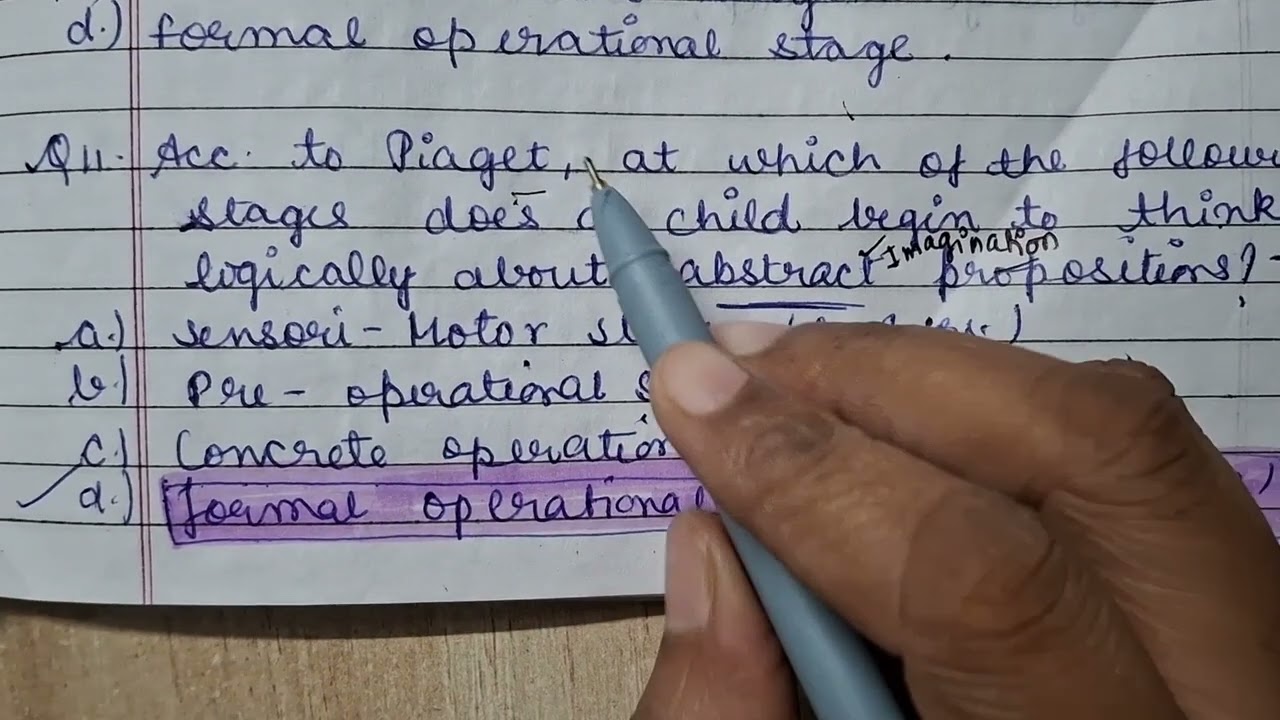 d.) formal operational stage.
Q11. Acc. to Piaget, at which of the
stages does a child begin to think
Imagination
logically about abstract propositions?
a.) Sensori-Motor
b.) Pre-operational
c.) Concrete
d.) formal operational